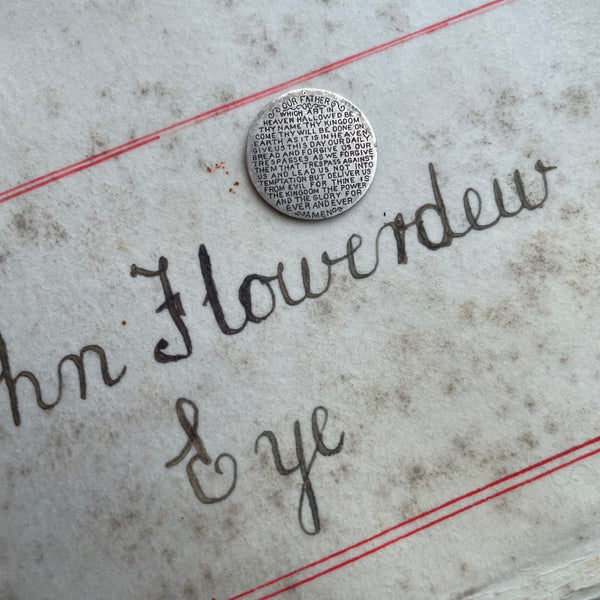 OUR FATHER
WHICH ART IN
HEAVEN HALLOWED BE
THY NAME THY KINGDOM
COME THY WILL BE DONE ON
EARTH AS IT IS IN HEAVEN
GIVE US THIS DAY OUR DAILY
BREAD AND FORGIVE US OUR
TRESPASSES AS WE FORGIVE
THEM THAT TRESPASS AGAINST
US AND LEAD US NOT INTO
TEMPTATION BUT DELIVER US
FROM EVIL FOR THINE IS
THE KINGDOM THE POWER
AND THE GLORY FOR
EVER AND EVER
AMEN
hn Flowerdew
Eye